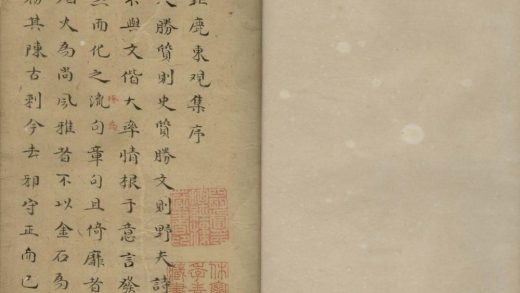 鹿東觀集序
文勝質則史質勝文則野夫詩
不與文偕大率情根于意言發
而化之流句章句且倚靡者
火為尚風雅者不以金石為
務其陳古刺今去邪守正而已